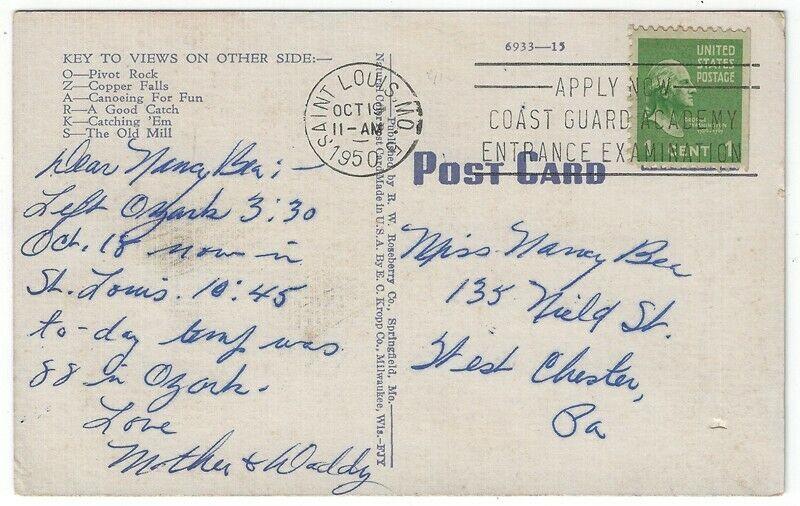 KEY TO VIEWS ON OTHER SIDE:—
O—Pivot Rock
Z—Copper Falls
A—Canoeing For Fun
R—A Good Catch
K—Catching 'Em
S—The Old Mill
Dear Nancy Bea:-
Left Ozark 3:30
Oct. 18 now in
St. Louis. 10:45
to-day temp was
88 in Ozark.
Love
Mother & Daddy
Published by R. W. Roseberry Co., Springfield, Mo.—
Natural Color Post Card Made in U.S.A. By E. C. Kropp Co., Milwaukee, Wis.—FJY
SAINT LOUIS, MO.
OCT 19
11-AM
1950
6933—15
APPLY NOW
COAST GUARD ACADEMY
ENTRANCE EXAMINATION
UNITED
STATES
POSTAGE
1 CENT
POST CARD
Miss Nancy Bea
135 Nield St.
West Chester,
Pa